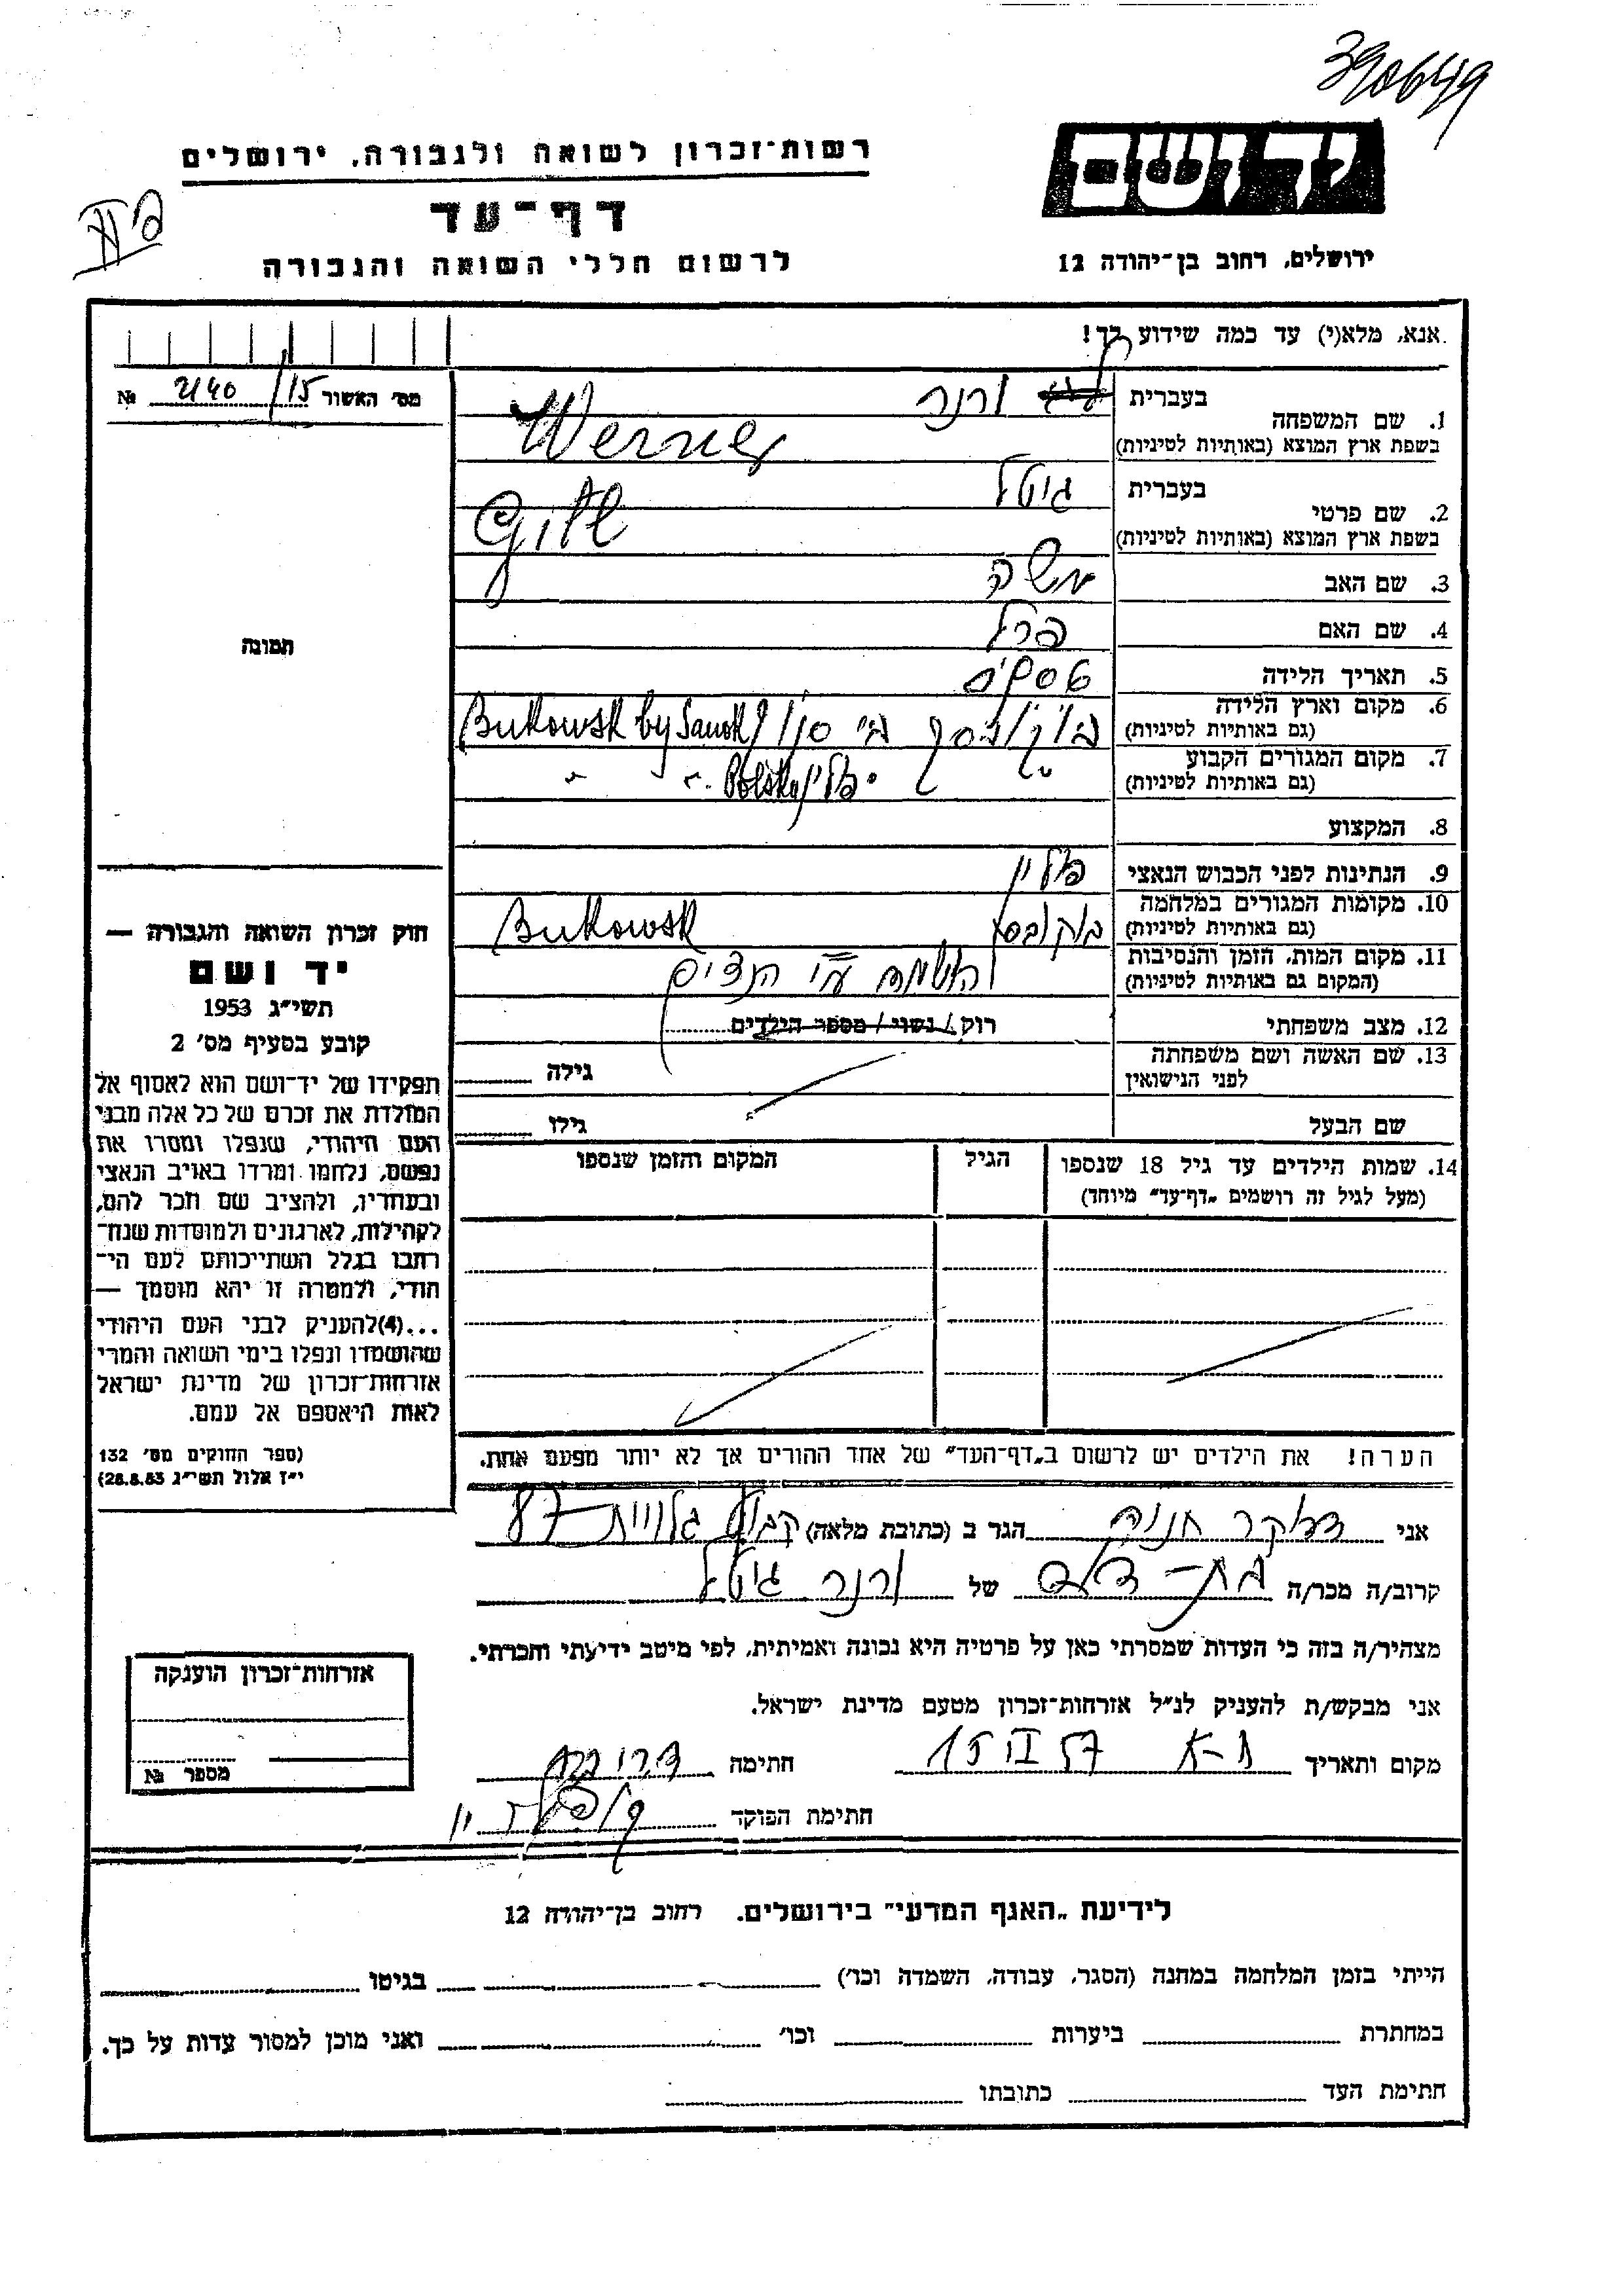 390649
רשות־זכרון לשואה ולגבורה, ירושלים
יד ושם
דף־עד
לרשום חללי השואה והגבורה
ירושלים, רחוב בן־יהודה 12
אנא, מלא(י) עד כמה שידוע לך!
מס׳ האשור 2140/15 №
1. שם המשפחה
בעברית ורנר
בשפת ארץ המוצא (באותיות לטיניות) Werner
2. שם פרטי
בעברית גיטל
בשפת ארץ המוצא (באותיות לטיניות) Gitl
3. שם האב משה
4. שם האם פרל
תמונה
5. תאריך הלידה
6. מקום וארץ הלידה
(גם באותיות לטיניות) Bukowsk by Sanok
7. מקום המגורים הקבוע
(גם באותיות לטיניות) פולין Polska
8. המקצוע
9. הנתינות לפני הכבוש הנאצי פולין
10. מקומות המגורים במלחמה
(גם באותיות לטיניות) בוקובסק Bukowsk
11. מקום המות, הזמן והנסיבות
(המקום גם באותיות לטיניות) הושמדה ע״י הנאצים
12. מצב משפחתי רוק / נשוי / מספר הילדים
13. שם האשה ושם משפחתה
לפני הנישואין גילה
שם הבעל גילו
14. שמות הילדים עד גיל 18 שנספו הגיל המקום והזמן שנספו
(מעל לגיל זה רושמים „דף־עד״ מיוחד)
חוק זכרון השואה והגבורה —
יד ושם
תשי״ג 1953
קובע בסעיף מס׳ 2
תפקידו של יד־ושם הוא לאסוף אל
המולדת את זכרם של כל אלה מבני
העם היהודי, שנפלו ומסרו את
נפשם, נלחמו ומרדו באויב הנאצי
ובעוזריו, ולהציב שם וזכר להם,
לקהילות, לארגונים ולמוסדות שנח־
רבו בגלל השתייכותם לעם הי־
הודי, ולמטרה זו יהא מוסמך —
...(4)להעניק לבני העם היהודי
שהושמדו ונפלו בימי השואה והמרי
אזרחות־זכרון של מדינת ישראל
לאות היאספם אל עמם.
(ספר החוקים מס׳ 132
י״ז אלול תשי״ג 28.8.53)
הערה! את הילדים יש לרשום ב„דף־העד״ של אחד ההורים אך לא יותר מפעם אחת.
אני חנה הגר ב (כתובת מלאה) קבוץ גלויות 87
קרוב/ה מכר/ה בת־דוד של ורנר גיטל
מצהיר/ה בזה כי העדות שמסרתי כאן על פרטיה היא נכונה ואמיתית, לפי מיטב ידיעתי והכרתי.
אני מבקש/ת להעניק לנ״ל אזרחות־זכרון מטעם מדינת ישראל.
מקום ותאריך ת־א 15 II 57 חתימה
חתימת הפוקד
אזרחות־זכרון הוענקה
מספר №
לידיעת „האגף המדעי״ בירושלים. רחוב בן־יהודה 12
הייתי בזמן המלחמה במחנה (הסגר, עבודה, השמדה וכו׳) בגיטו
במחתרת ביערות וכו׳ ואני מוכן למסור עדות על כך.
חתימת העד כתובתו